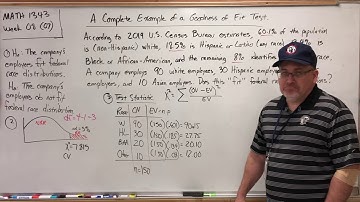 MATH 1343
Week 08 (G7)
A Complete Example of a Goodness of Fit Test.
According to 2019 U.S. Census Bureau estimates, 60.1% of the population
is (non-Hispanic) white, 18.5% is Hispanic or Latino (any race),
Black or African-American, and the remaining 8% identifies
A company employs 90 white employees, 30 Hispanic employees,
employees, and 10 Asian employees. Does this "fit" federal
① H₀: The company's
employees fit federal
race distributions.
Hₐ: The company's
employees do not fit
federal race
distributions.
②
df = 4-1 = 3
α=5%
χ²=7.815
CV
③ Test Statistic
χ² = Σ (OV-EV)²
EV
Race OV EV=n·p
W 90 (150)(.601)=90.15
H/L 30 (150)(.185)=27.75
BAA 20
Other 10 =12.00
n=150